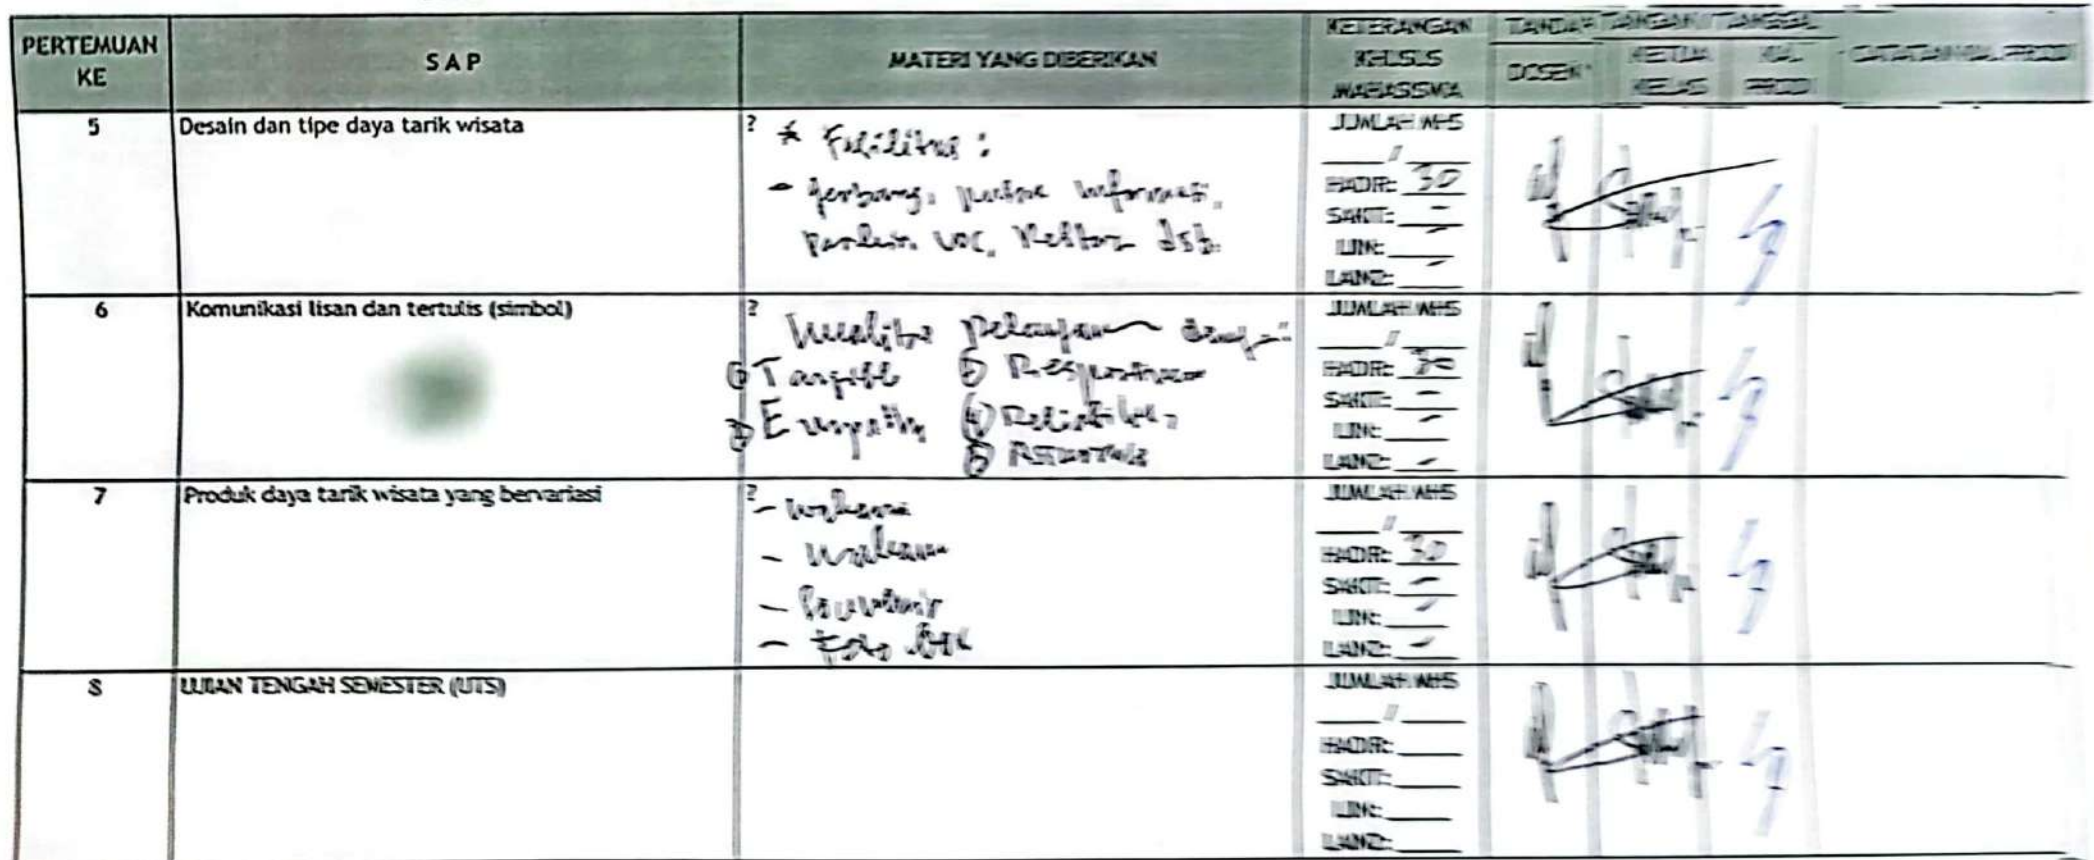 PERTEMUAN KE
SAP
MATERI YANG DIBERIKAN
KETERANGAN KHUSUS MAHASISWA
TANDA TANGAN / TANGGAL
DOSEN
KETUA KELAS
KA. PRODI
CATATAN KA. PRODI
5
Desain dan tipe daya tarik wisata
?
* Fasilitas :
- gerbang, pusat informasi,
parkir, WC, dsb.
JUMLAH MHS
___/___
HADIR: 30
SAKIT: -
IJIN: -
LAIN2: -
6
Komunikasi lisan dan tertulis (simbol)
?
Kualitas pelayanan
① Tangible
② Empathy
④
⑤
JUMLAH MHS
___/___
HADIR: 30
SAKIT: -
IJIN: -
LAIN2: -
7
Produk daya tarik wisata yang bervariasi
?
- wahana
- makanan
- souvenir
- foto
JUMLAH MHS
___/___
HADIR: 30
SAKIT: -
IJIN: -
LAIN2: -
8
UJIAN TENGAH SEMESTER (UTS)
JUMLAH MHS
___/___
HADIR: ___
SAKIT: ___
IJIN: ___
LAIN2: ___